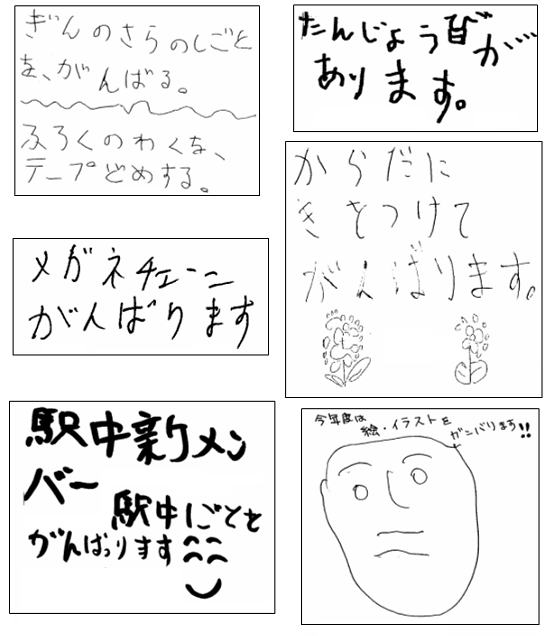 ぎんのさらのしごと
を、がんばる。
ふろくのわくを、
テープどめする。
たんじょう日が
あります。
からだに
きをつけて
がんばります。
メガネチェーン
がんばります
駅中新メン
バー
駅中しごとを
がんばります
今年度は
絵・イラストを
ガンバります!!